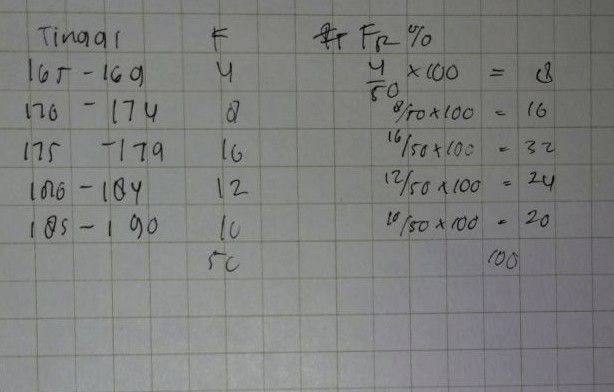 Tinggi F FR %
165 - 169 4 4/50 x 100 = 8
170 - 174 8 8/50 x 100 = 16
175 - 179 16 16/50 x 100 = 32
180 - 184 12 12/50 x 100 = 24
185 - 190 10 10/50 x 100 = 20
50 100